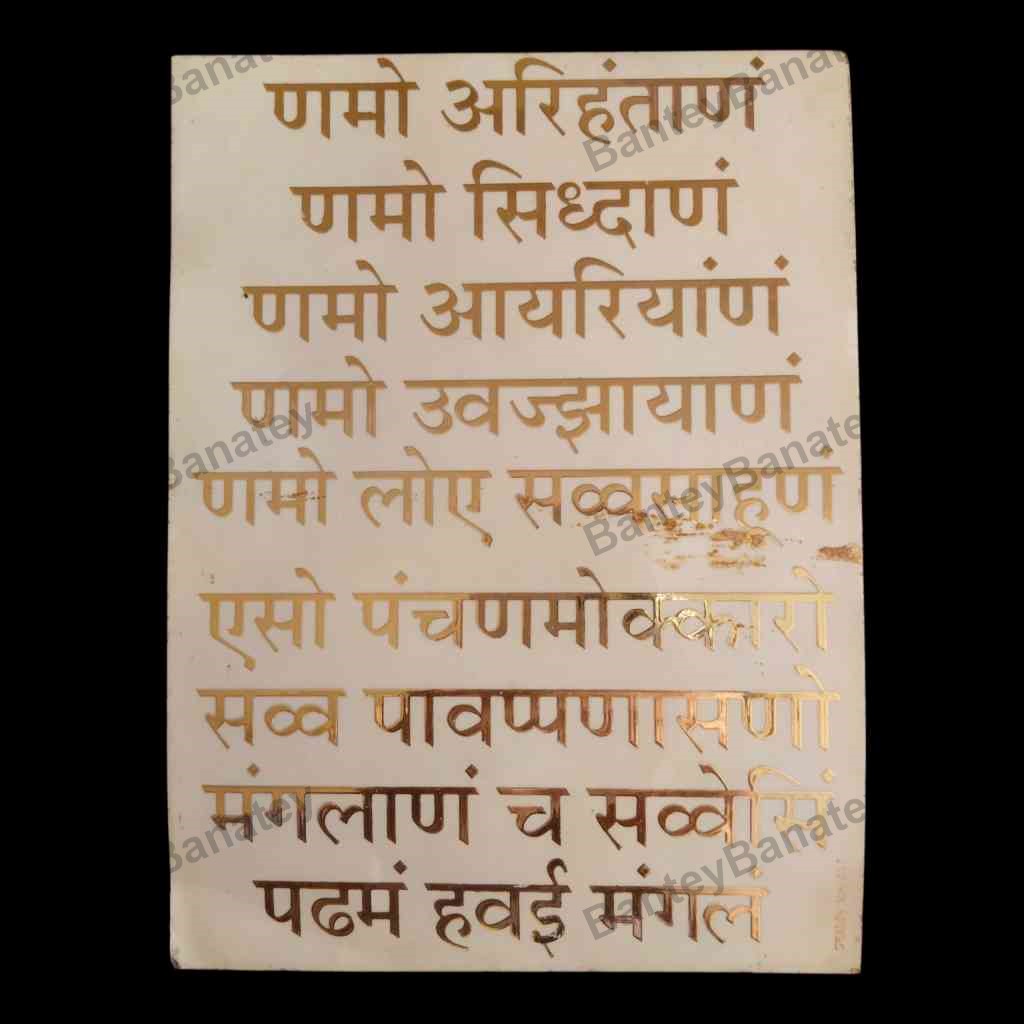 णमो अरिहंताणं
णमो सिध्दाणं
णमो आयरियांणं
णमो उवज्झायाणं
णमो लोए सव्वसाहूणं
एसो पंचणमोक्कारो
सव्व पावप्पणासणो
मंगलाणं च सव्वेसिं
पढमं हवई मंगलं